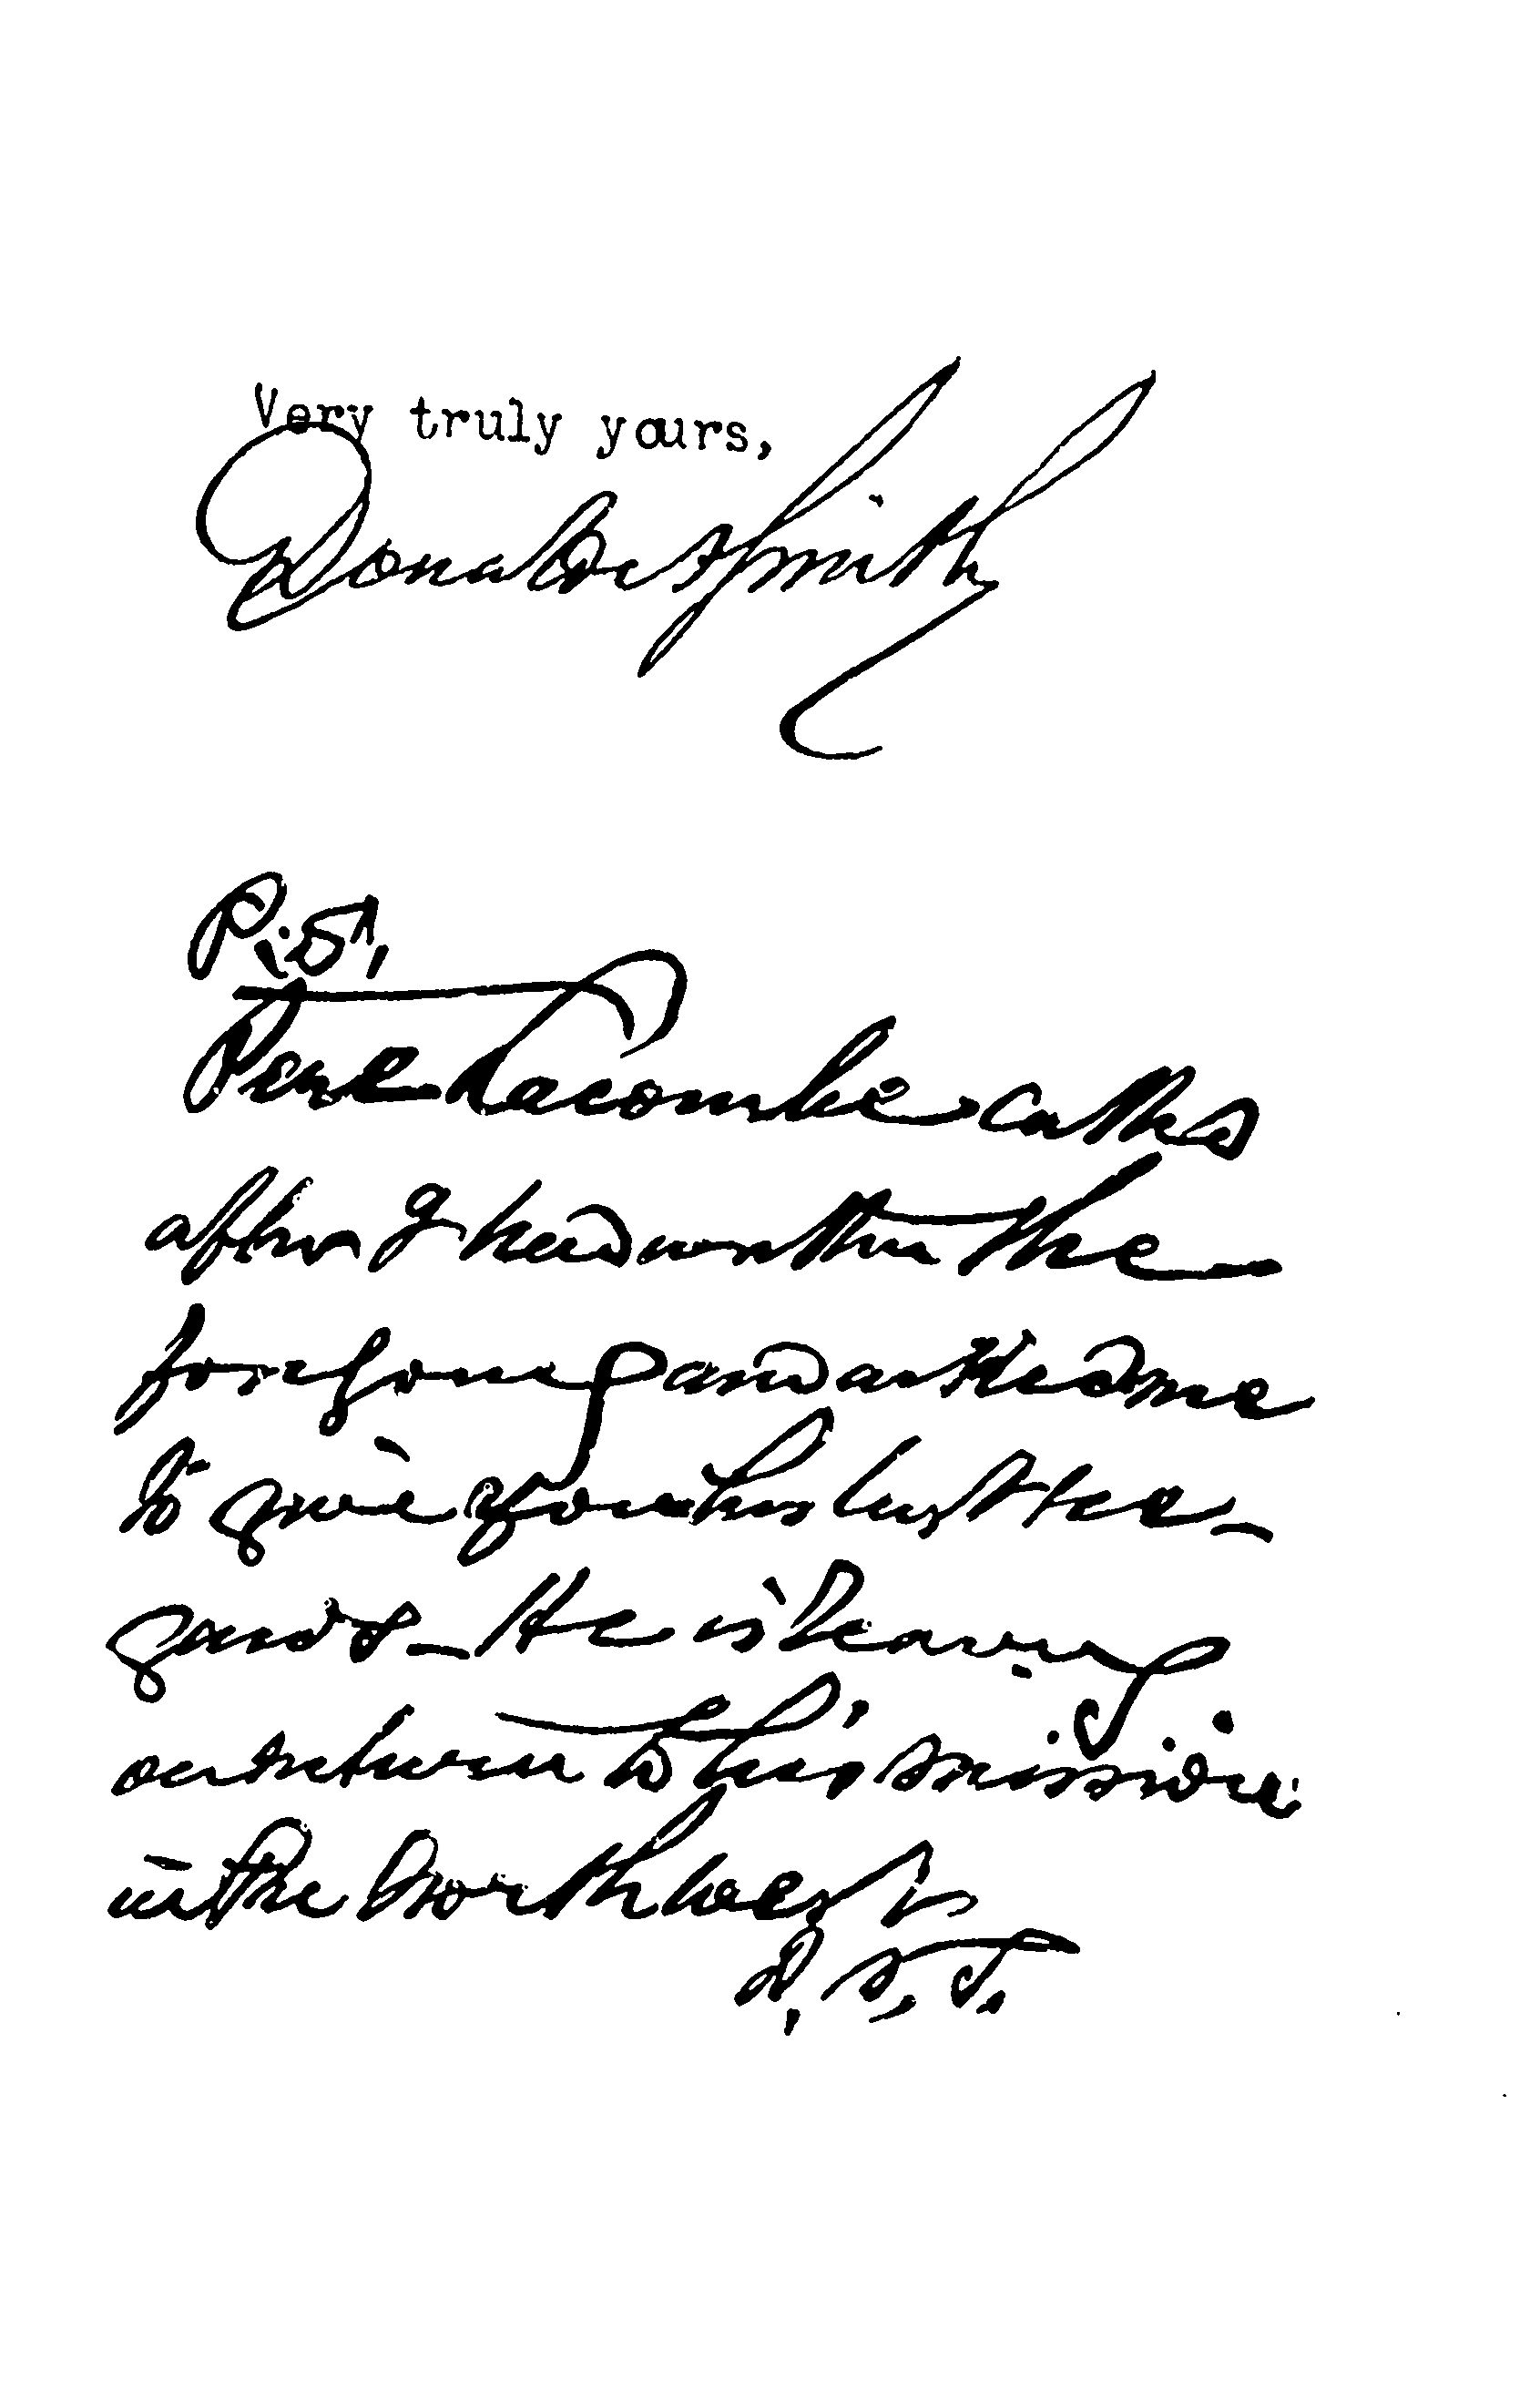 Very truly yours,
Donald A Smith
P.S.
Pere Lacombe called
after I had written the
foregoing and asked me
to give you his best re-
gards - He is leaving
on return to his mission
in the North West
D. A. S.